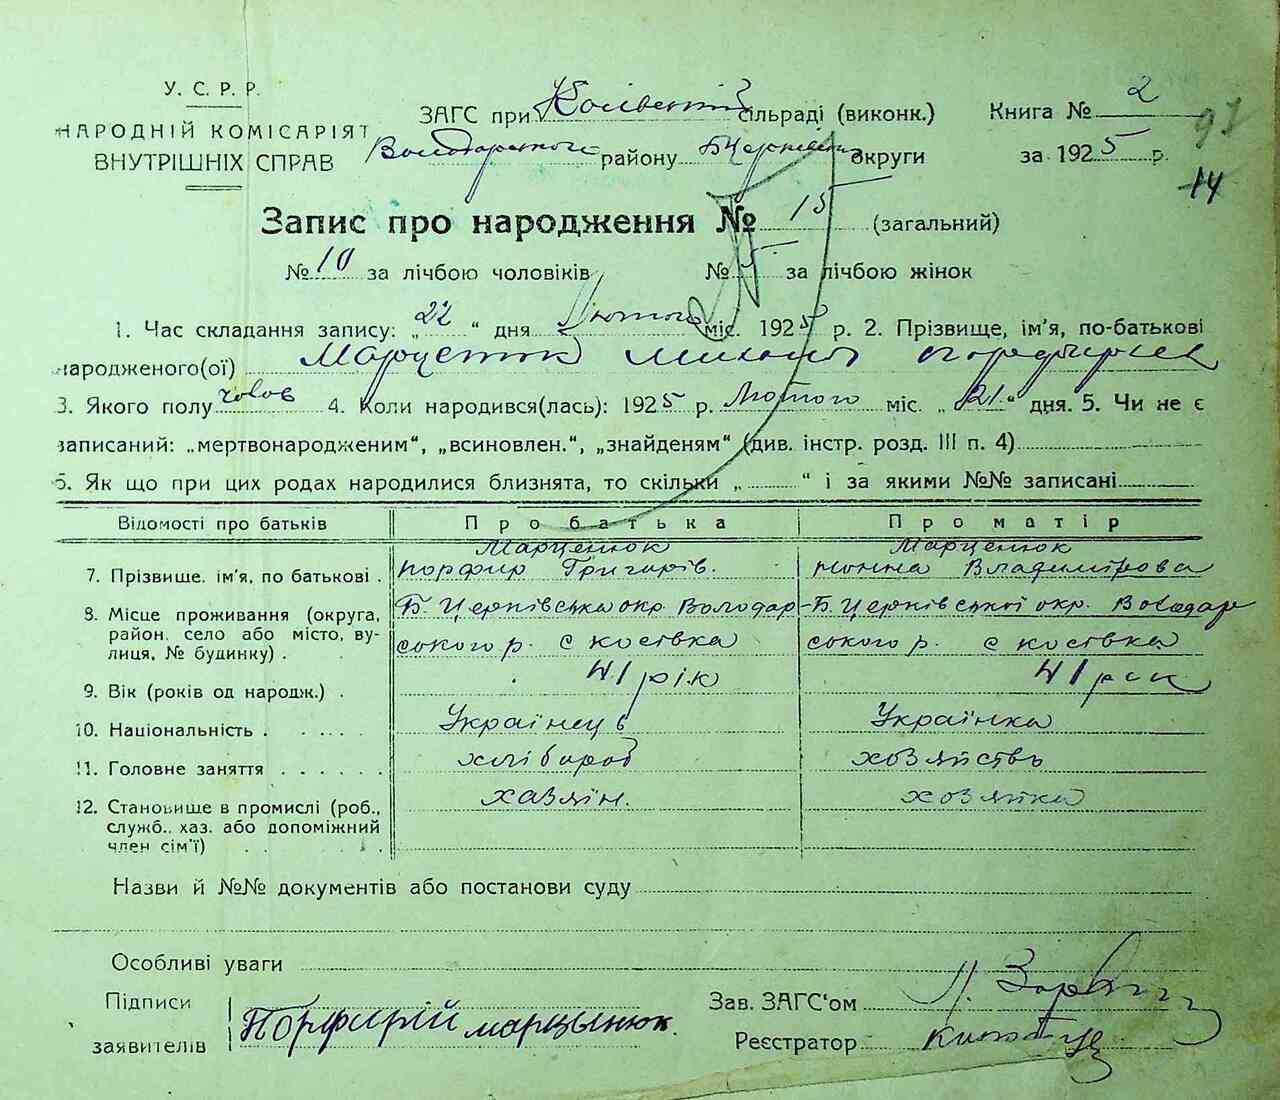 У. С. Р. Р.
НАРОДНІЙ КОМІСАРІЯТ
ВНУТРІШНІХ СПРАВ
ЗАГС при сільраді (виконк.)
Володарського району Б Церківської округи
Книга № 2
за 1925 р.
97
14
Запис про народження № 15 (загальний)
№ 10 за лічбою чоловіків № 5 за лічбою жінок
1. Час складання запису: „22“ дня Лютого міс. 1925 р. 2. Прізвище, ім'я, по-батькові
народженого(ої) Марценюк Михайло
3. Якого полу чолов 4. Коли народився(лась): 1925 р. Лютого міс. „21“ дня. 5. Чи не є
записаний: „мертвонародженим“, „всиновлен.“, „знайденям“ (див. інстр. розд. III п. 4)
6. Як що при цих родах народилися близнята, то скільки „ “ і за якими №№ записані
Відомості про батьків Про батька Про матір
7. Прізвище, ім'я, по батькові . Марценюк Порфир Григорів. Марценюк Нонна Владимірова
8. Місце проживання (округа, район, село або місто, вулиця, № будинку) . Б. Церківська окр. Володарського р. с Косівка Б. Церківської окр. Володарського р. с Косівка
9. Вік (років од народж.) . 41 рік 41 рік
10. Національність . Українець Українка
11. Головне заняття хлібороб хозяйство
12. Становище в промислі (роб., служб., хаз. або допоміжний член сім'ї) хазяін. хозяйка
Назви й №№ документів або постанови суду
Особливі уваги
Підписи заявителів Порфирій марцынюк.
Зав. ЗАГС'ом
Реєстратор